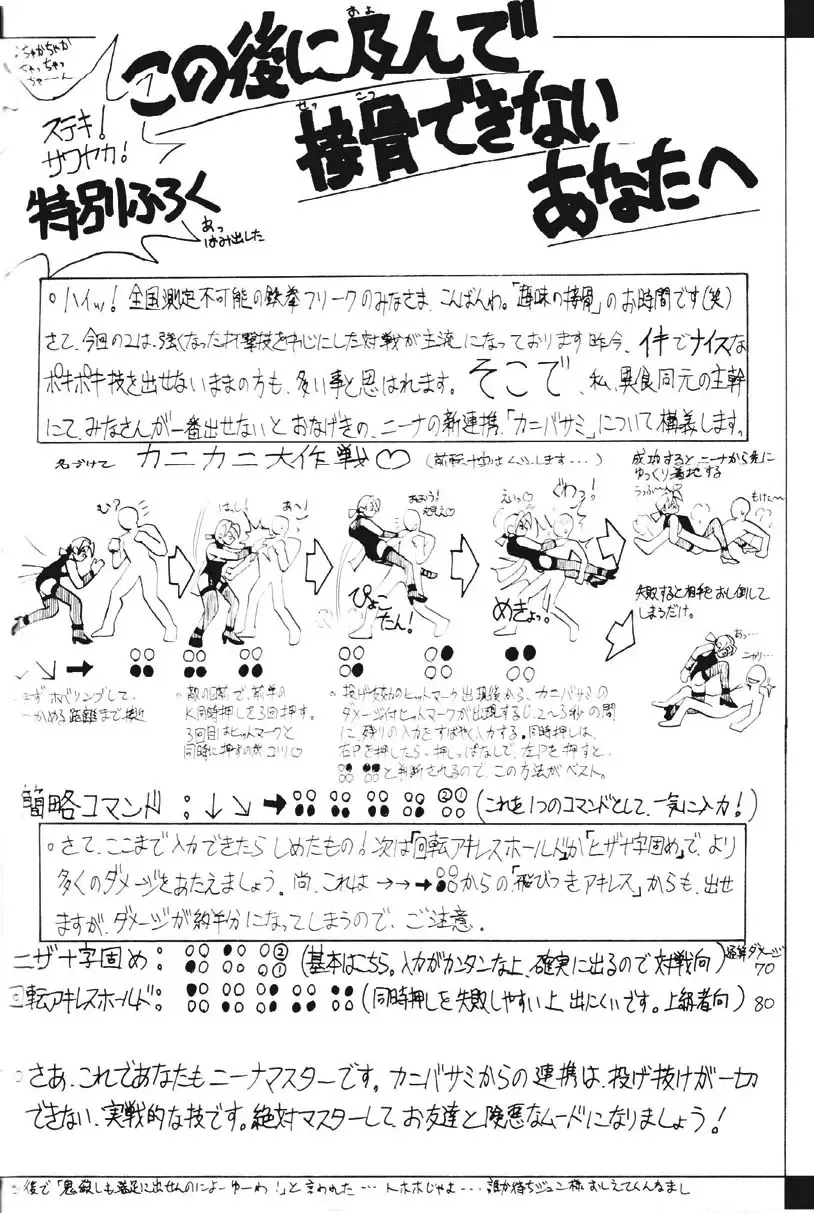 ちゃかちゃか
ちゃっちゃっ
ちゃーーん
この後に及んで
およ
接骨できない
せっこつ
あなたへ
ステキ!
サワヤカ!
特別ふろく
あっ
はみ出した
○ハイッ! 全国測定不可能の鉄拳フリークのみなさま、こんばんわ。「趣味の接骨」のお時間です(笑)
さて、今回の2は、強くなった打撃技を中心にした対戦が主流になっております昨今、イキでナイスな
ポキポキ技を出せないままの方も、多い事と思はれます。そこで、私、異食同元の主幹
にて、みなさんが一番出せないとおなげきの、ニーナの新連携、「カニバサミ」について構義します。
名づけて カニカニ大作戦♡
成功するとニーナから先に
ゆっくり着地する
うっふ〜ん
もけた〜
む?
はし!
あ〜!
えいっ♡
ぐわっ!
ぴょこ
たん!
めきょっ。
失敗すると相手をおし倒して
しまうだけ。
あっ…
ニヤリ…
↓ ↘ → ○○●● ○○●● ○○●● ○○●● ●○●● ●●○○
まずホバリングして、
つかめる距離まで接近
○敵の目前で、前半の
K同時押しを3回押す。
3回目はヒットマークと
同時に押すのがコツ♡
○投げ有効のヒットマーク出現後から、カニバサミの
ダメージ付ヒットマークが出現する0.2〜3秒の間
に、残りの入力をすばやく入力する。同時押しは、
右Pを押したら、押しっぱなしで、左Pを押すと、
と判断されるので、この方法がベスト。
簡略コマンド:↓↘→ (これを1つのコマンドとして、一気に入力!)
○さて、ここまで入力できたらしめたもの!次は「回転アキレスホールド」か「ヒザ十字固め」で、より
多くのダメージをあたえましょう。尚、これは→→→からの「飛びつきアキレス」からも、出せ
ますが、ダメージが約半分になってしまうので、ご注意。
ヒザ十字固め: (基本はこちら。入力がカンタンな上、確実に出るので対戦向) ダメージ
70
回転アキレスホールド: (同時押しを失敗しやすい上、出にくいです。上級者向) 80
○さあ、これであなたもニーナマスターです。カニバサミからの連携は、投げ抜けが一切
できない、実戦的な技です。絶対マスターして、お友達と険悪なムードになりましょう!
後で「鬼殺しも満足に出せんのによーゆーわ!」と言われた…トホホじゃよ…誰か待ちジュン様おしえてくんなまし